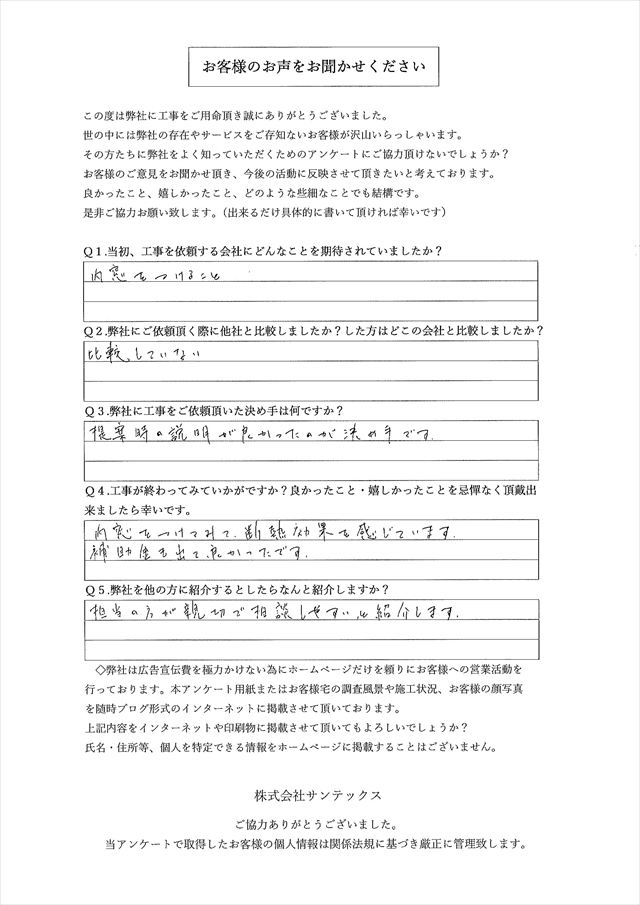 お客様のお声をお聞かせください
この度は弊社に工事をご用命頂き誠にありがとうございました。
世の中には弊社の存在やサービスをご存知ないお客様が沢山いらっしゃいます。
その方たちに弊社をよく知っていただくためのアンケートにご協力頂けないでしょうか？
お客様のご意見をお聞かせ頂き、今後の活動に反映させて頂きたいと考えております。
良かったこと、嬉しかったこと、どのような些細なことでも結構です。
是非ご協力お願い致します。（出来るだけ具体的に書いて頂ければ幸いです）
Ｑ１.当初、工事を依頼する会社にどんなことを期待されていましたか？
内窓をつけること
Ｑ２.弊社にご依頼頂く際に他社と比較しましたか？した方はどこの会社と比較しましたか？
比較していない
Ｑ３.弊社に工事をご依頼頂いた決め手は何ですか？
提案時の説明が良かったのが決め手です。
Ｑ４.工事が終わってみていかがですか？良かったこと・嬉しかったことを忌憚なく頂戴出
来ましたら幸いです。
内窓をつけてみて、断熱効果を感じています。
補助金も出て、良かったです。
Ｑ５.弊社を他の方に紹介するとしたらなんと紹介しますか？
担当の方が親切で相談しやすいと紹介します。
◇弊社は広告宣伝費を極力かけない為にホームページだけを頼りにお客様への営業活動を
行っております。本アンケート用紙またはお客様宅の調査風景や施工状況、お客様の顔写真
を随時ブログ形式のインターネットに掲載させて頂いております。
上記内容をインターネットや印刷物に掲載させて頂いてもよろしいでしょうか？
氏名・住所等、個人を特定できる情報をホームページに掲載することはございません。
株式会社サンテックス
ご協力ありがとうございました。
当アンケートで取得したお客様の個人情報は関係法規に基づき厳正に管理致します。